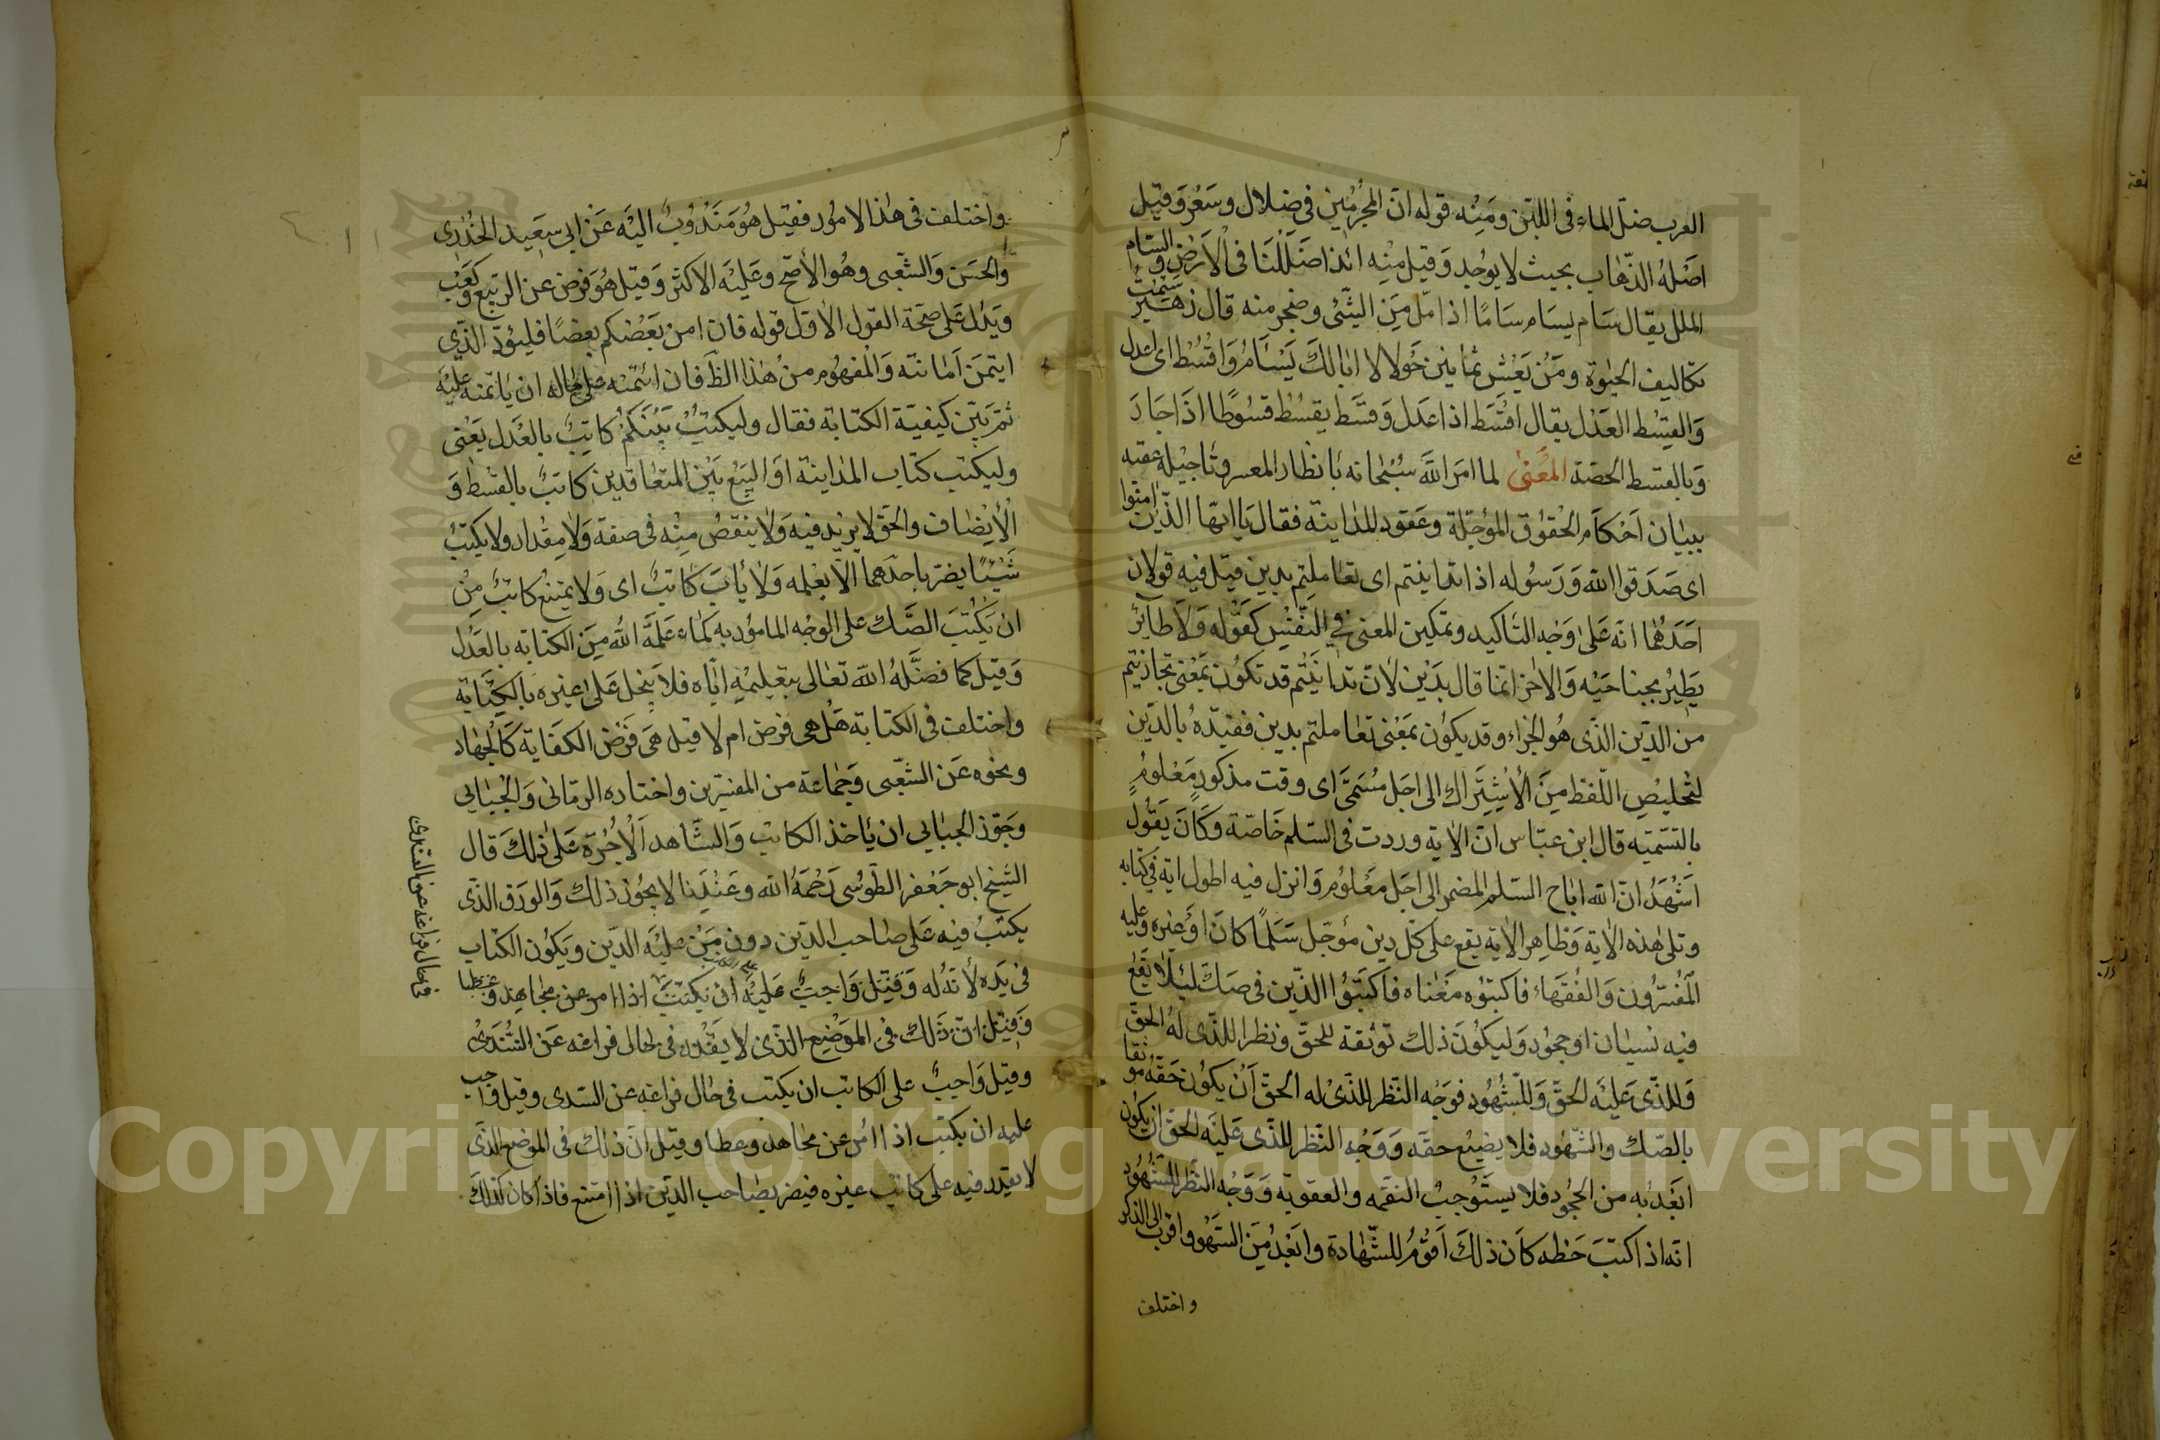 العرب ضلّ الماء فى اللبن ومنه قوله ان المجرمين فى ضلال وسعر وقيل
اصله الذهاب بحيث لا يوجد وقيل منه ائذا ضللنا فى الارض والسام
الملل يقال سام يسام ساما اذا ملّ من الشئ وضجر منه قال زهير سئمت
تكاليف الحيوة ومن يعش ثمانين حولا لا ابا لك يسام واقسط اى اعدل
والقسط العدل يقال اقسط اذا عدل وقسط يقسط قسوطا اذا جار
وبالقسط الحصة المعنى لما امر الله سبحانه بانظار المعسر وتاجيله عقبه
ببيان احكام الحقوق المؤجلة وعقود المداينة فقال يا ايها الذين امنوا
اى صدقوا الله ورسوله اذا تداينتم اى تعاملتم بدين قيل فيه قولان
احدهما انه على وجه التاكيد وتمكين المعنى فى النفس كقوله ولا طائر
يطير بجناحيه والاخر انما قال بدين لان تداينتم قد تكون بمعنى تجازيتم
من الدين الذى هو الجزاء وقد يكون بمعنى تعاملتم بدين فقيده بالدين
لتخليص اللفظ من الاشتراك الى اجل مسمى اى وقت مذكور معلوم
بالتسمية قال ابن عباس ان الاية وردت فى السلم خاصة وكان يقول
اشهد ان الله اباح السلم المضمر الى اجل معلوم وانزل فيه اطول اية فى كتابه
وتلى هذه الاية وظاهر الاية يقع على كل دين مؤجل سلما كان او غيره وعليه
المفسرون والفقهاء فاكتبوه معناه فاكتبوا الدين فى صك لئلا يقع
فيه نسيان او جحود وليكون ذلك توثقة للحق ونظرا للذى له الحق
وللذى عليه الحق وللشهود فوجه النظر للذى له الحق ان يكون حقه موثقا
بالصك والشهود فلا يضيع حقه ووجه النظر للذى عليه الحق ان يكون
ابعد به من الجحود فلا يستوجب النقمه والعقوبة ووجه النظر للشهود
انه اذا كتب خطه كان ذلك اقوم للشهادة وابعد من السهو واقرب الى الذكر
واختلف
واختلف فى هذا الامور فقيل هو مندوب اليه عن ابى سعيد الخدرى
والحسن والشعبى وهو الاصح وعليه الاكثر وقيل هو فرض عن الربيع وكعب
ويدل على صحة القول الاول قوله فان امن بعضكم بعضا فليؤد الذى
ايتمن امانته والمفهوم من هذا الظ فان ائتمنه على ماله ان ياتمنه عليه
ثم بين كيفية الكتابة فقال وليكتب بينكم كاتب بالعدل يعنى
وليكتب كتاب المداينة او البيع بين المتعاقدين كاتب بالقسط و
الانصاف والحق لا يزيد فيه ولا ينقص منه فى صفة ولا مقدار ولا يكتب
شيئا يضر باحدهما الا بعلمه ولا ياب كاتب اى ولا يمتنع كاتب من
ان يكتب الصك على الوجه المامور به كما علمه الله من الكتابه بالعدل
وقيل كما فضله الله تعالى بتعليمه اياه فلا يبخل على غيره بالكتابة
واختلف فى الكتابة هل هى فرض ام لا قيل هى فرض الكفاية كالجهاد
ونحوه عن الشعبى وجماعة من المفسرين واختاره الرمانى والجبائى
وجوّز الجبايى ان ياخذ الكاتب والشاهد الاجرة على ذلك قال
الشيخ ابو جعفر الطوسى رحمه الله وعندنا لا يجوز ذلك والورق الذى
يكتب فيه على صاحب الدين دون من عليه الدين ويكون الكتاب
فى يده لانه له وقيل واجب عليه ان يكتب اذا امر عن مجاهد وعطا
وقيل ان ذلك فى الموضع الذى لا يقدر فى حال فراغه عن السدى
وقيل واجب على الكاتب ان يكتب فى حال فراغه عن السدى وقيل واجب
عليه ان يكتب اذا امر عن مجاهد وعطا وقيل ان ذلك فى الموضع الذى
لا يقدر فيه على كاتب غيره فيضر بصاحب الدين اذا امتنع فاذا كان كذلك
Copyright © King Saud University